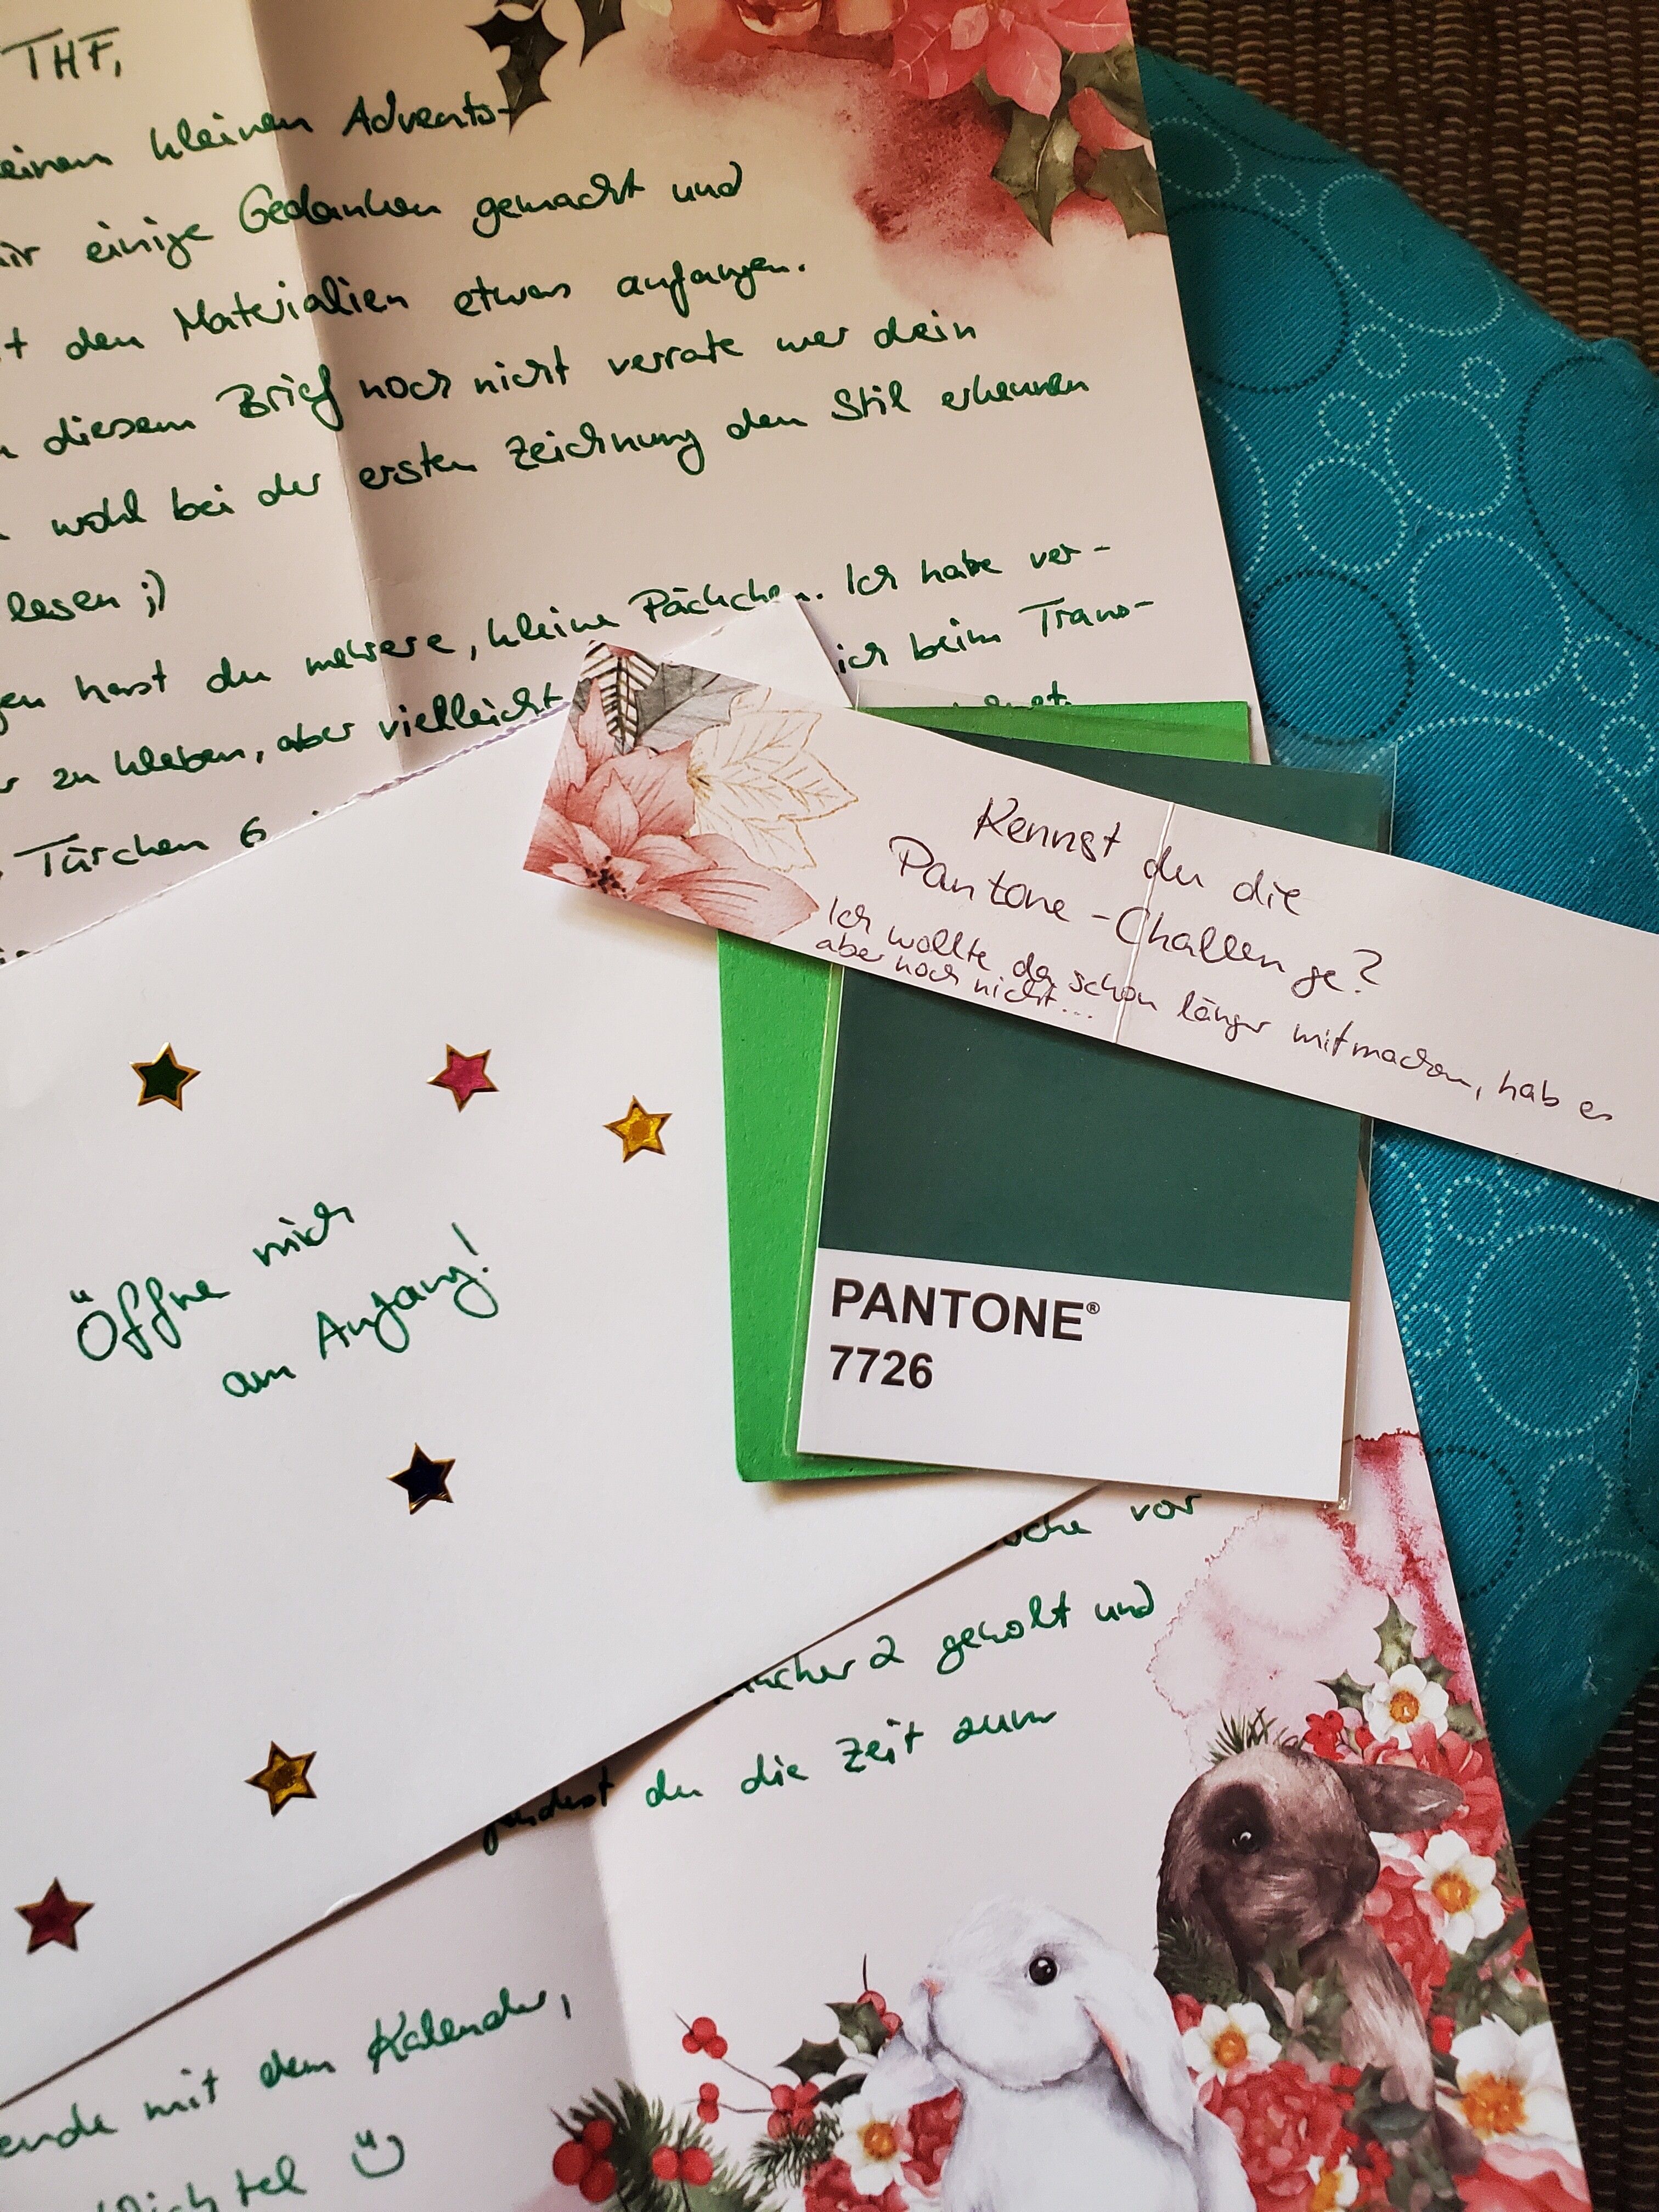 THF,
einen kleinen Advents-
mir einige Gedanken gemacht und
den Materialien etwas anfangen.
diesem Brief noch nicht verrate wer dein
wohl bei der ersten Zeichnung den Stil erkennen
lesen ;)
hast du mehrere, kleine Päckchen. Ich habe ver-
zu kleben, aber vielleicht ich beim Trans-
Türchen 6
Kennst du die
Pantone-Challenge?
Ich wollte da schon länger mitmachen, hab es
aber noch nicht...
Öffne mich
am Anfang!
PANTONE®
7726
vor
2 geholt und
findest du die Zeit zum
mit dem Kalender,
Wichtel